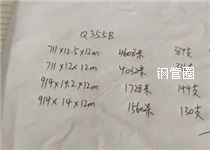 Q355B
711×12.5×12m 4608米 384支
711×12×12m 4032米
914×14.2×12m 1728米 144支
914×14×12m 1560米 130支
钢管圈